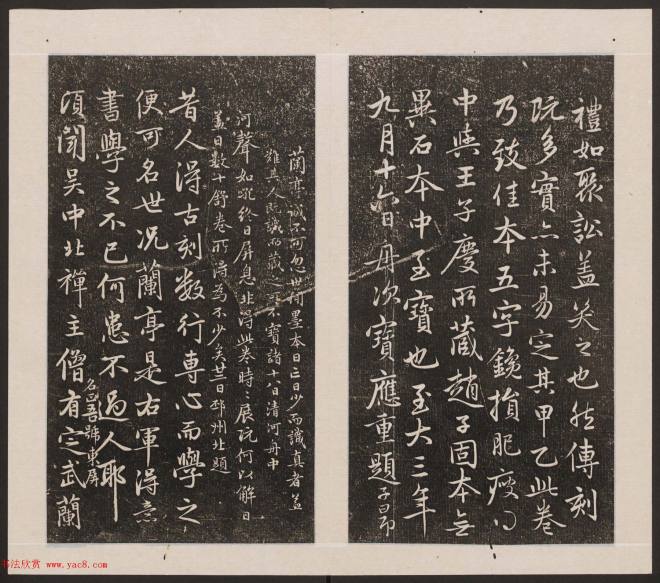 禮如聚訟盖笑之也然傳刻
既多實亦未易定其甲乙此卷
乃致佳本五字鑱損肥瘦得
中與王子慶所藏趙子固本無
異石本中至寶也至大三年
九月十六日舟次寶應重題子昂
蘭亭誠不可忽世間墨本日亡日少而識真者蓋
難其人既識而藏之可不寶諸十八日清河舟中
河聲如吼終日屏息非得此卷時時展玩何以解日
蓋日數十舒卷所得為不少矣廿二日邳州北題
昔人得古刻數行專心而學之
便可名世况蘭亭是右軍得意
書學之不已何患不過人耶
頃聞吳中北禪主僧有定武蘭
名正吾號東屏
书法欣赏 www.yac8.com